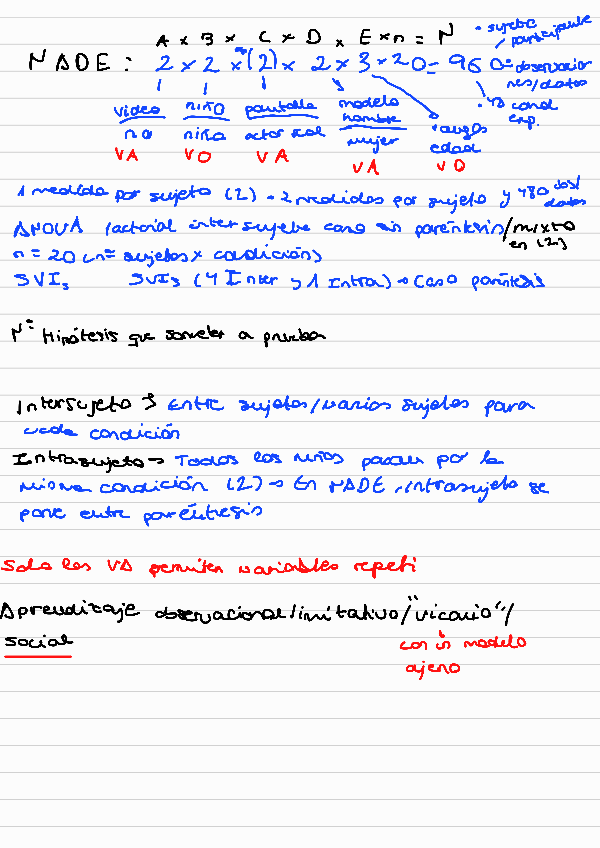 A x B x C x D x E x n = N
• sujeto / participante
NADE: 2 x 2 x (2) x 2 x 3 x 20 = 960 = observaciones/datos
• 48 cond exp.
video niño pantalla modelo hombre
no niña actor real mujer rangos edad
VA VO VA VA VO
1 medida por sujeto (2) → 2 medidas por sujeto y 480 datos
ANOVA factorial intersujeto caso sin paréntesis/mixto en (2)
n = 20 (n = sujetos x condición)
5VIs 5VIs (4 Inter y 1 Intra) → Caso paréntesis
Nº Hipótesis que someter a prueba
Intersujeto → Entre sujetos/varios sujetos para
cada condición
Intrasujeto → Todos los niños pasan por la
misma condición (2) → En NADE, intrasujeto se
pone entre paréntesis
Solo las VA permiten variables repeti
Aprendizaje observacional/imitativo/"vicario"/
social
con un modelo
ajeno